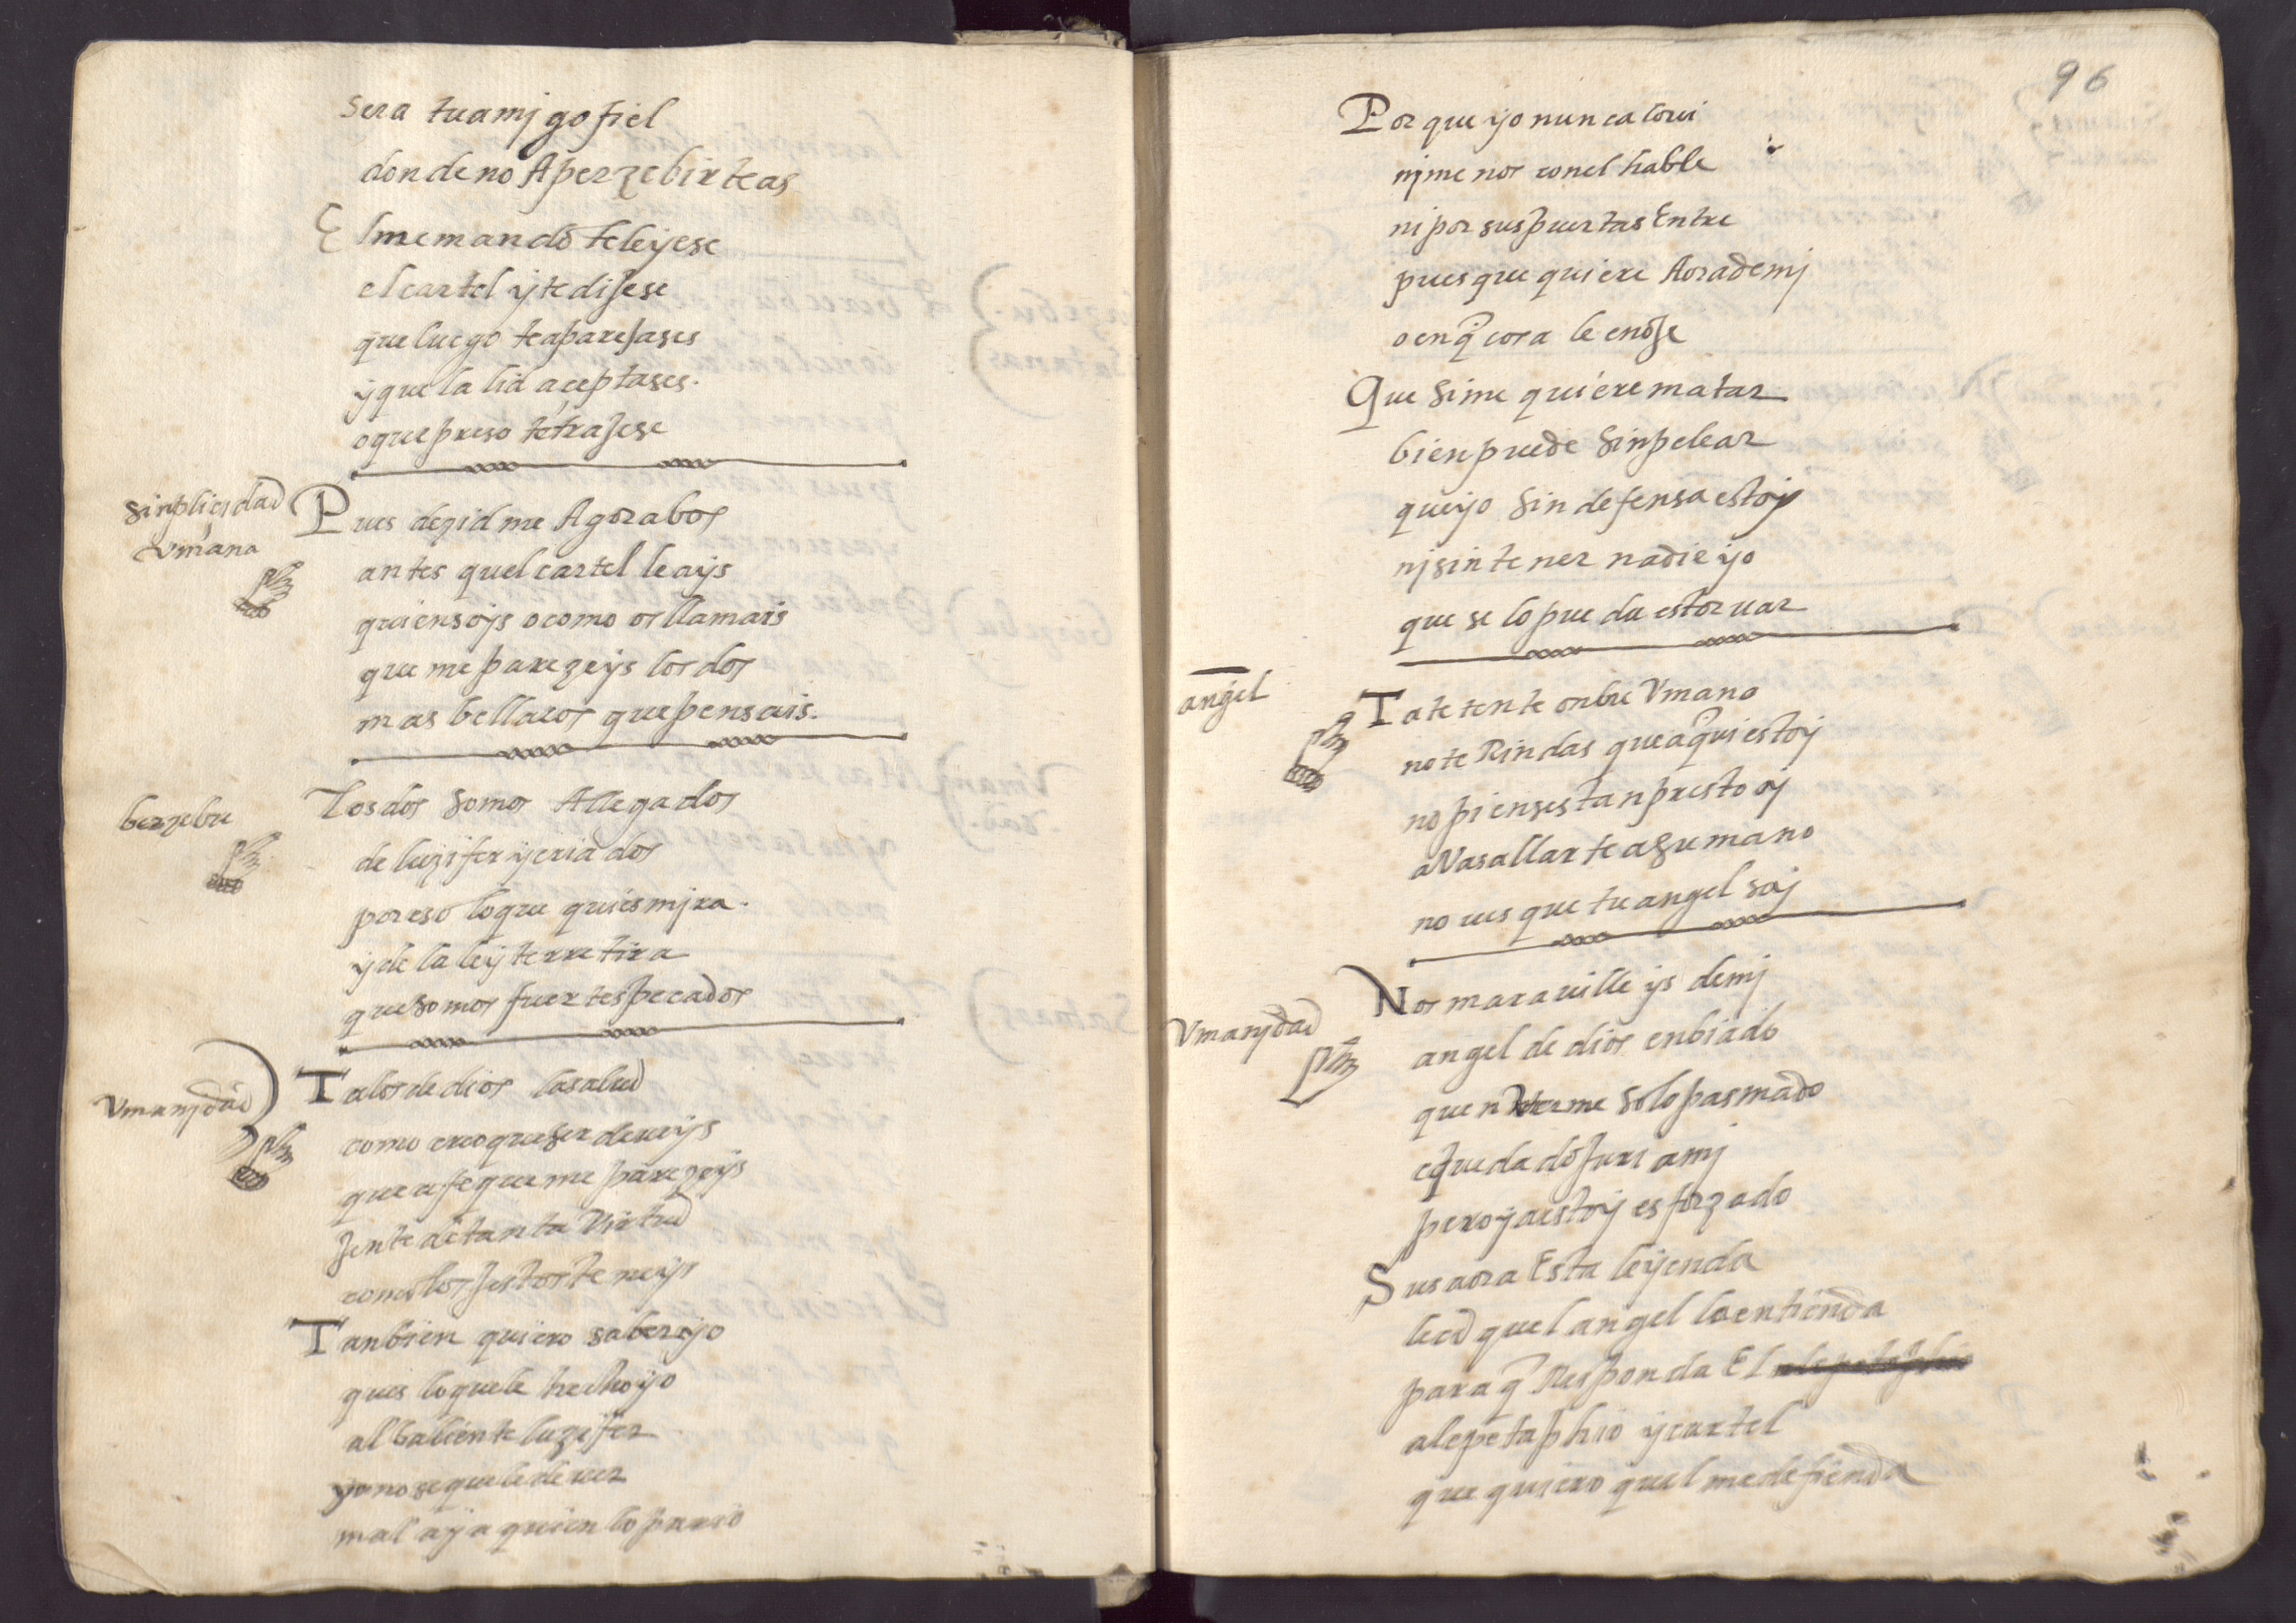 sera tu amjgo fiel
donde no Aperzebirte as
El me mando te leyese
el cartel y te dijese
que luego te aparejases
y que la lid aceptases.
o que preso te trajese
sinplicidad
vmana
Pues dezidme Agora bos
antes quel cartel leays
quien soys o como os llamais
que me parezeys los dos
mas bellacos que pensais.
berzebu
Los dos somos Allegados
de luzifer y criados
por eso lo que quies mjra.
y de la ley te rretira
que somos fuertes pecados
Vmanjdad
Tal os de dios la salud
como creo que ser deueys
que a fe que me parezeys
jente de tanta Virtud
como los jestos teneys
Tanbien quiero saber yo
ques lo que le hecho yo
al baliente luzifer
yo no se que le deuer
mal aya quien lo pario
96
Por que yo nunca lo ui
nj menos con el hable
ni por sus puertas Entre
pues que quiere Aora de mj
o en q̃ cosa le enoje
Que si me quiere matar
bien puede sin pelear
que yo sin defensa estoy
nj sin tener nadie yo
que se lo pueda estoruar
angel
Tate tente onbre Vmano
no te Rindas que aqui estoy
no pienses tan presto oy
aVasallarte a su mano
no ues que tu angel soy
Vmanjdad
Nos marauilleys de mj
angel de dios enbiado
quen verme solo pasmado
e quedado fuera mj
pero ya estoy esforzado
Sus aora Esta leyenda
leed quel angel lo entienda
para q̃ Responda El
al epetaphio y cartel
que quiero quel me defienda